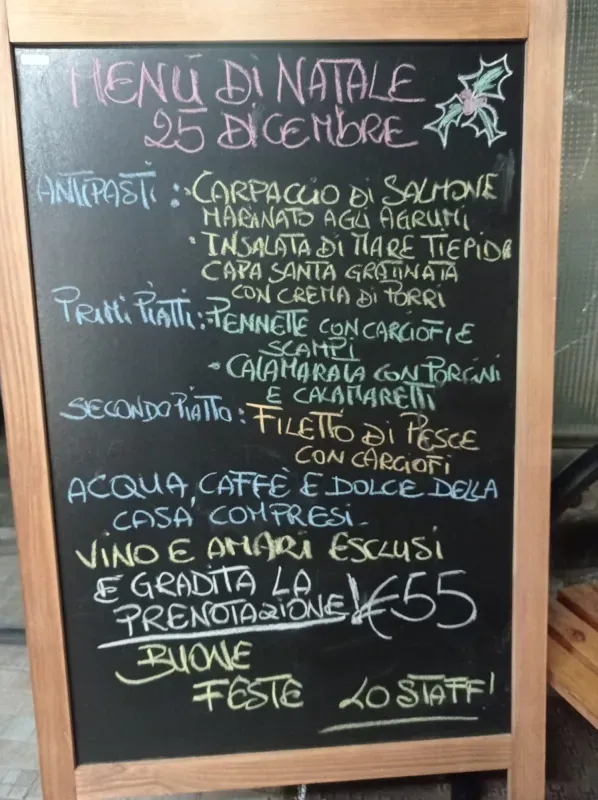 MENÚ DI NATALE
25 DICEMBRE
ANTIPASTI : • CARPACCIO DI SALMONE
MARINATO AGLI AGRUMI
• INSALATA DI MARE TIEPIDA
CAPA SANTA GRATINATA
CON CREMA DI PORRI
PRIMI PIATTI : - PENNETTE CON CARCIOFI E
SCAMPI
• CALAMARATA CON PORCINI
E CALAMARETTI
SECONDO PIATTO : FILETTO DI PESCE
CON CARCIOFI
ACQUA, CAFFÈ E DOLCE DELLA
CASA COMPRESI -
VINO E AMARI ESCLUSI
E GRADITA LA
PRENOTAZIONE! €55
BUONE
FESTE LO STAFF!